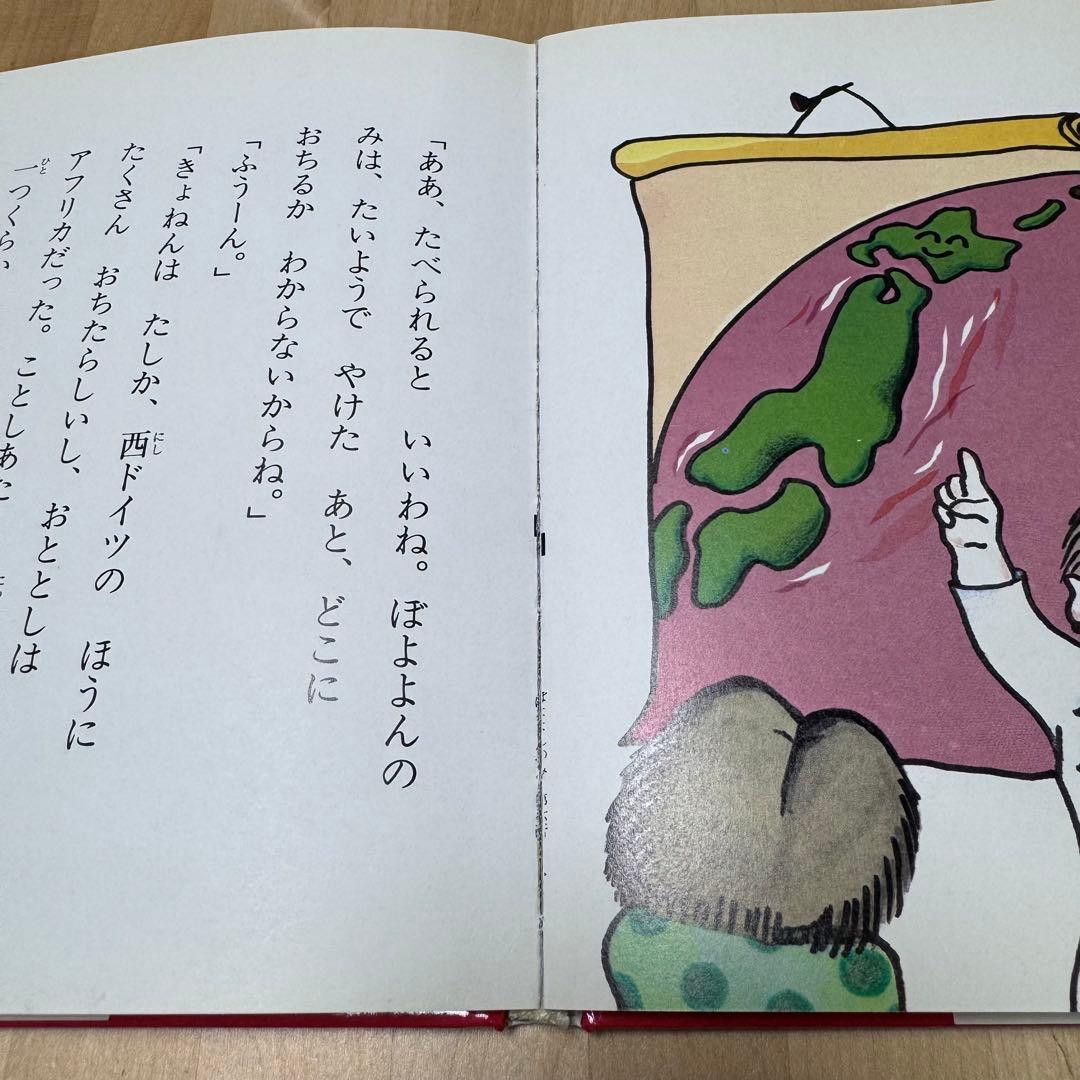 「ああ、たべられると　いいわね。ぼよよんの
みは、たいようで　やけた　あと、どこに
おちるか　わからないからね。」
「ふうーん。」
「きょねんは　たしか、西ドイツの　ほうに
たくさん　おちたらしいし、おととしは
アフリカだった。ことしあた
一つくらい